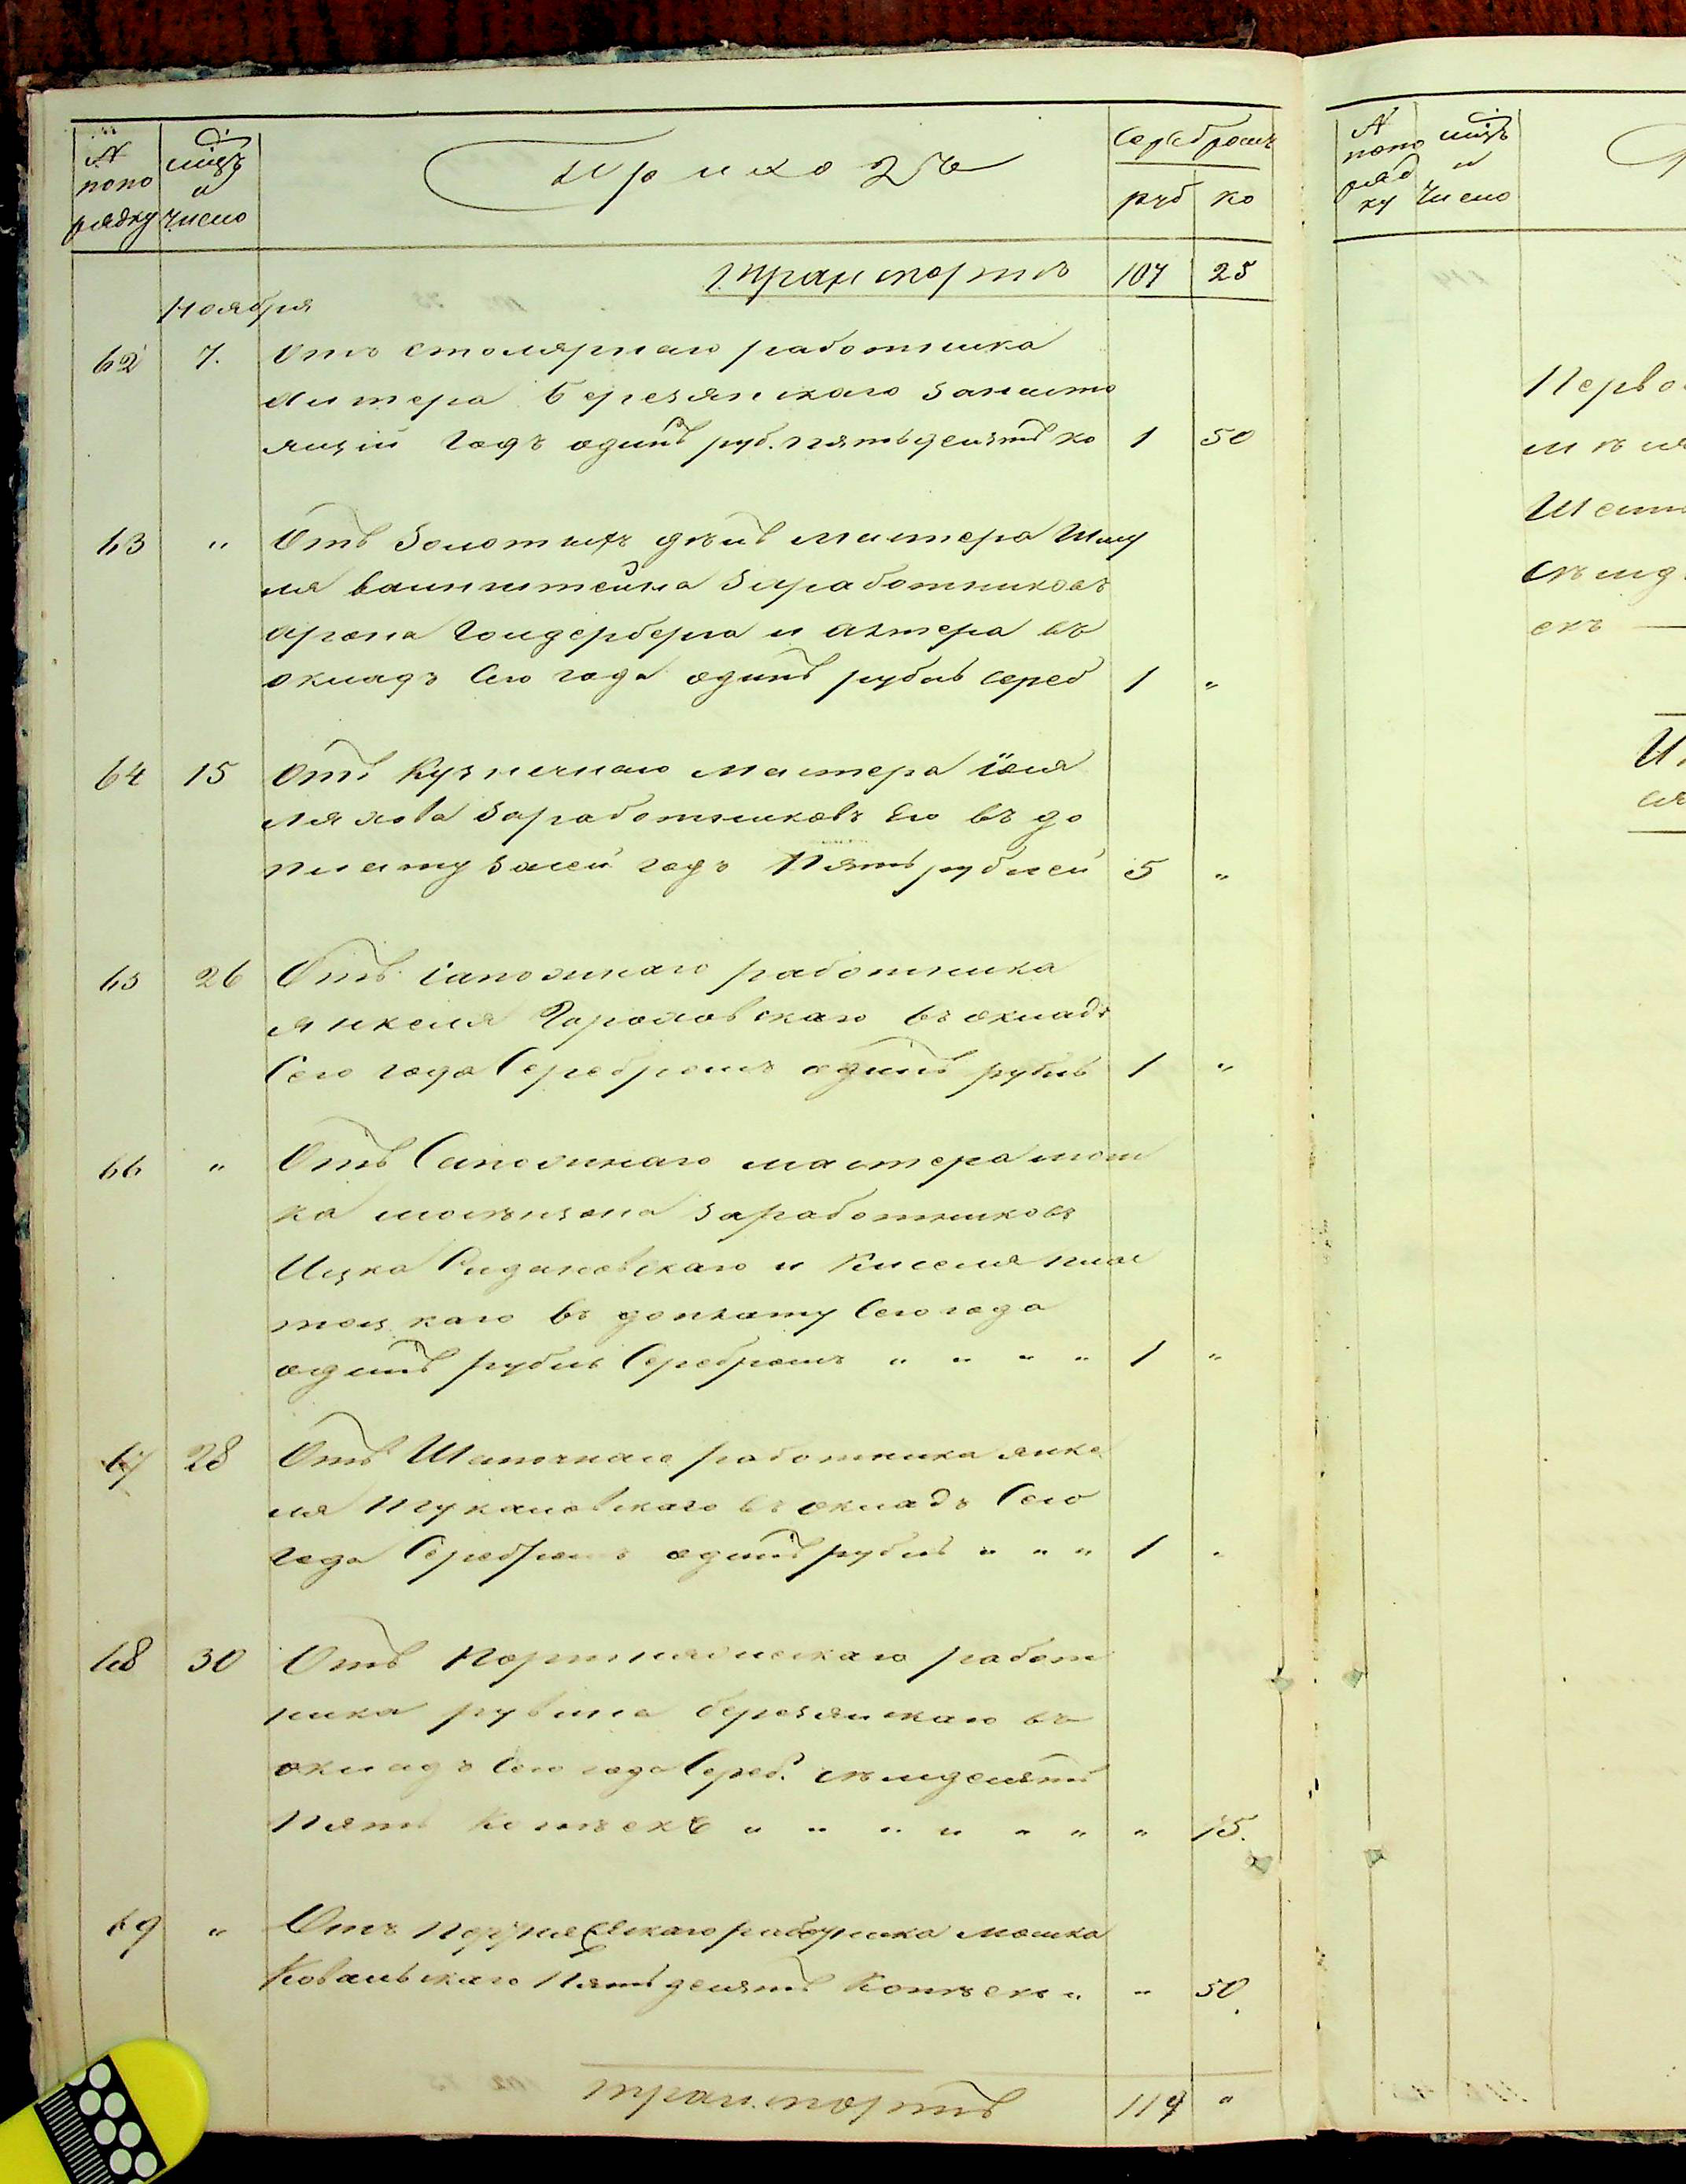 № попо рядку
мцъ и число
Приходъ
Серебромъ
руб ко
транспортъ 107 25
Ноября
62 7. Отъ столярнаго работника
Литера Березянскаго занасто
ящій годъ одинъ руб. пятьдесятъ ко 1 50
63 " Отъ Золотыхъ дѣлъ мастера Шму
ля Ваинштейна заработниковъ
арона Гольдерберга и Алтера въ
окладъ сего года одинъ рубль сереб 1 "
64 15 Отъ Кузнечнаго мастера Іоля
Ляхова заработниковъ его въ до
плату засей годъ Пять рублей 5 "
65 26 Отъ сапожнаго работника
Янкеля Гороховскаго въ окладъ
Сего года Серебромъ одинъ рубль 1 "
66 " Отъ Сапожнаго мастера мош
ка заработниковъ
Ицка и Киселя плос
тоцкаго въ доплату Сего года
одинъ рубль Серебромъ " " " " 1 "
67 28 Отъ Шапочнаго работника янке
ля Тукановскаго въ окладъ Сего
года Серебромъ одинъ рубль " " " 1 "
68 30 Отъ Портняжескаго работ
ника рувина березянскаго въ
окладъ Сего года Сереб. семдесятъ
Пять Копѣекъ " " " " " " " 75.
69 " Отъ работника мошка
Ковальскаго Пятьдесятъ Копѣекъ " " 50.
транспортъ 119 "
№ попо ряд ку
мцъ и число
Перво